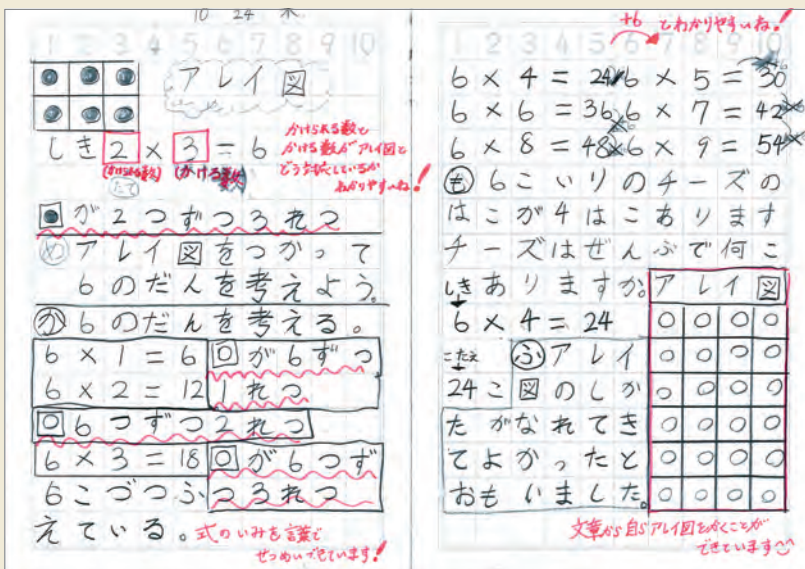 10 24 木
1 2 3 4 5 6 7 8 9 10
アレイ図
しき 2 × 3 = 6
(かけられる数) (かける数)
たて
かけられる数と
かける数がアレイ図と
どう対応しているか
わかりやすいね!
が2つずつ3れつ
め アレイ図をつかって
6のだんを考えよう。
か 6のだんを考える。
6 × 1 = 6 がら6ずつ
6 × 2 = 12 1れつ
6つずつ2れつ
6 × 3 = 18 が6つず
6こづつふ つ3れつ
えている。
式のいみを言葉で
せつめいできています!
1 2 3 4 5 6 7 8 9 10
+6 とわかりやすいね!
6 × 4 = 24 6 × 5 = 30
6 × 6 = 36 6 × 7 = 42
6 × 8 = 48 6 × 9 = 54
も 6こいりのチーズの
はこが4はこあります
チーズはぜんぶで何こ
ありますか。
しき
6 × 4 = 24
こたえ
24こ
アレイ図
ふ アレイ
図のしか
たがなれてき
てよかったと
おもいました。
文章から自らアレイ図をかくことが
できています